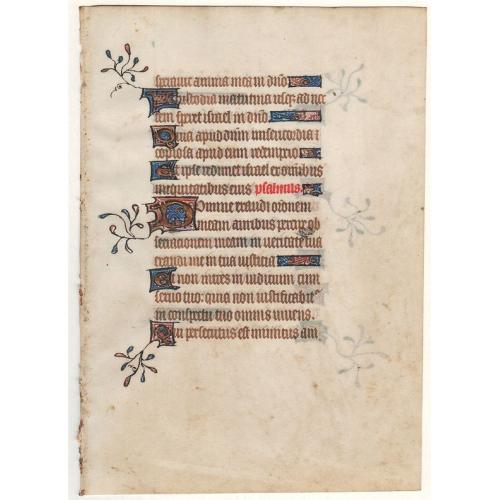 sperauit anima mea in dn̄o
A custodia matutina usqꝫ ad noc
tem speret israel in dn̄o
Quia apud dn̄m misericordia ⁊
copiosa apud eum redempcio
Et ipse redimet israel ex om̄ibus
iniquitatibus eius psalmus.
Domine exaudi orōnem
meam auribus percipe ob
secrationem meam in ueritate tua
exaudi me in tua iusticia
Et non intres in iudicium cum
seruo tuo: quia non iustificabitᵘ
in conspectu tuo omnis uiuens.
Quia persecutus est inimicus ani